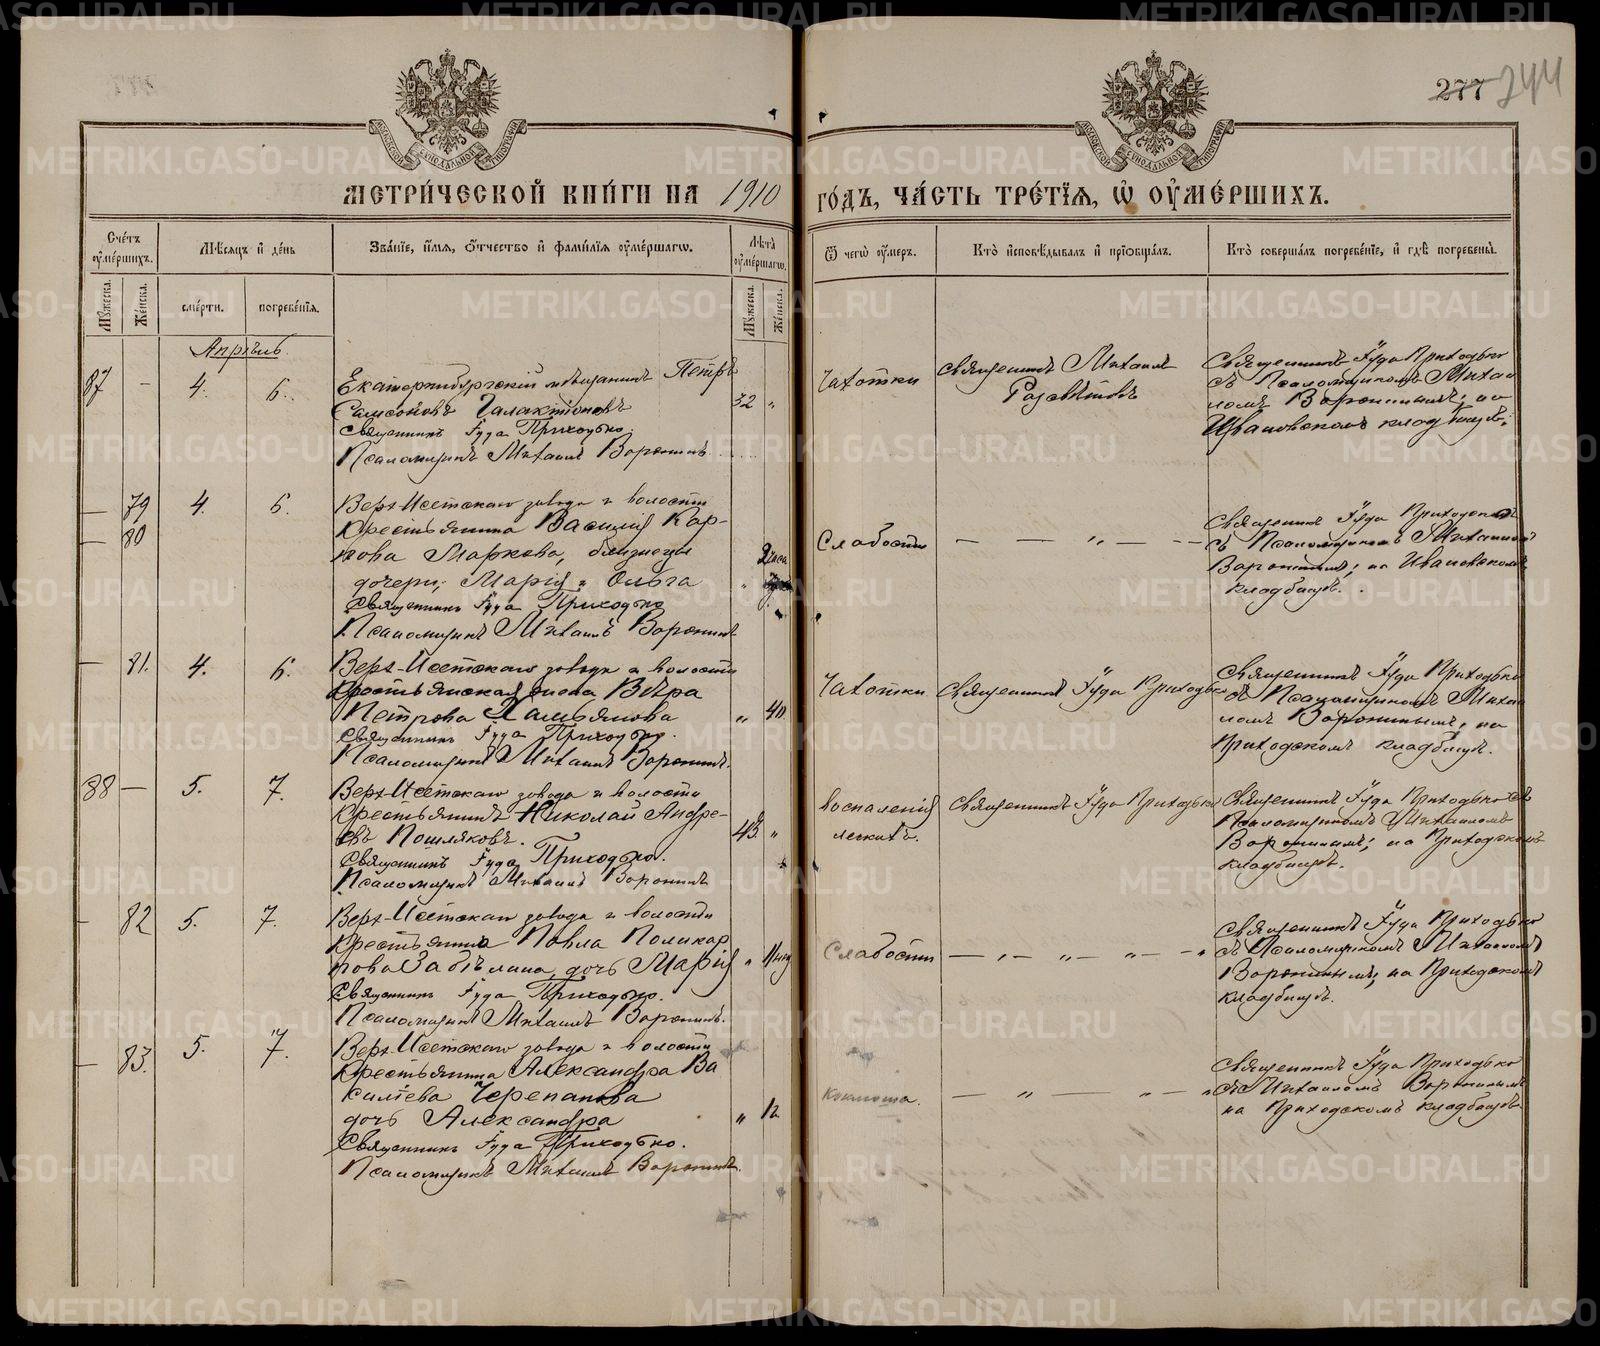 277 244
МЕТРИ́ЧЕСКОЙ КНИ́ГИ НА 1910 ГО́ДЪ, ЧА́СТЬ ТРЕ́ТЇѦ, Ѡ ОУМЕ́РШИХЪ.
Сче́тъ оуме́ршихъ.
Мѣ́сяцъ и де́нь
Зва́нїе, и́мѧ, ѻ́тчество и фами́лїѧ оуме́ршагѡ.
Лѣ́та оуме́ршагѡ.
Ѿ чегѡ̀ оу́меръ.
Кто̀ исповѣ́дывалъ и прїѻбща́лъ.
Кто̀ соверша́лъ погребе́нїе, и гдѣ̀ погребены̀.
Мꙋ́жеска.
Же́нска.
сме́рти.
погребе́нїѧ.
Мꙋ́жеска.
Же́нска.
Апрѣль.
87 — 4. 6.
Екатеринбургскій мѣщанинъ Петръ
Самсоновъ Галактіоновъ
Священникъ Іуда Приходько.
Псаломщикъ Михаилъ Воронинъ.
52 „
Чахотки
Священникъ Михаилъ
Священникъ Іуда Приходько
съ Псаломщикомъ Михаи
ломъ Воронинымъ; на
Ивановскомъ кладбищѣ.
— 79 4. 6.
— 80
Верх-Исетскаго завода и волости
Крестьянина Василія Кар-
пова Маркова, близнецы
дочери; Марія и Ольга
Священникъ Іуда Приходько
Псаломщикъ Михаилъ Воронинъ
„ 2 часа
Слабости
— — „ — —
Священникъ Іуда Приходько
съ Псаломщикомъ Михаиломъ
Воронинымъ; на Ивановскомъ
кладбищѣ.
— 81. 4. 6.
Верх-Исетскаго завода и волости
Крестьянская жена Вѣра
Петрова
Священникъ Іуда Приходько.
Псаломщикъ Михаилъ Воронинъ.
„ 40
Чахотки
Священникъ Іуда Приходько
Священникъ Іуда Приходько
съ Псаломщикомъ Михаи
ломъ Воронинымъ, на
Приходскомъ кладбищѣ.
88 — 5. 7.
Верх-Исетскаго завода и волости
Крестьянинъ Николай Андре-
евъ Пошляковъ.
Священникъ Іуда Приходько.
Псаломщикъ Михаилъ Воронинъ
43 „
Воспаленія
легкихъ.
Священникъ Іуда Приходько
Священникъ Іуда Приходько съ
Псаломщикомъ Михаиломъ
Воронинымъ; на Приходскомъ
кладбищѣ.
— 82 5. 7.
Верх-Исетскаго завода и волости
Крестьянина Павла Поликар
пова Забѣлина, дочь Марія
Священникъ Іуда Приходько.
Псаломщикъ Михаилъ Воронинъ.
„
Слабости
— „ — „ — „ — „
Священникъ Іуда Приходько
съ Псаломщикомъ Михаиломъ
Воронинымъ; на Приходскомъ
кладбищѣ.
— 83. 5. 7.
Верх-Исетскаго завода и волости
Крестьянина Александра Ва
сильева Черепанова
дочь Александра
Священникъ Іуда Приходько.
Псаломщикъ Михаилъ Воронинъ.
„
Коклюша.
— „ — „ — „
Священникъ Іуда Приходько
съ Михаиломъ Воронинымъ
на Приходскомъ кладбищѣ
METRIKI.GASO-URAL.RU